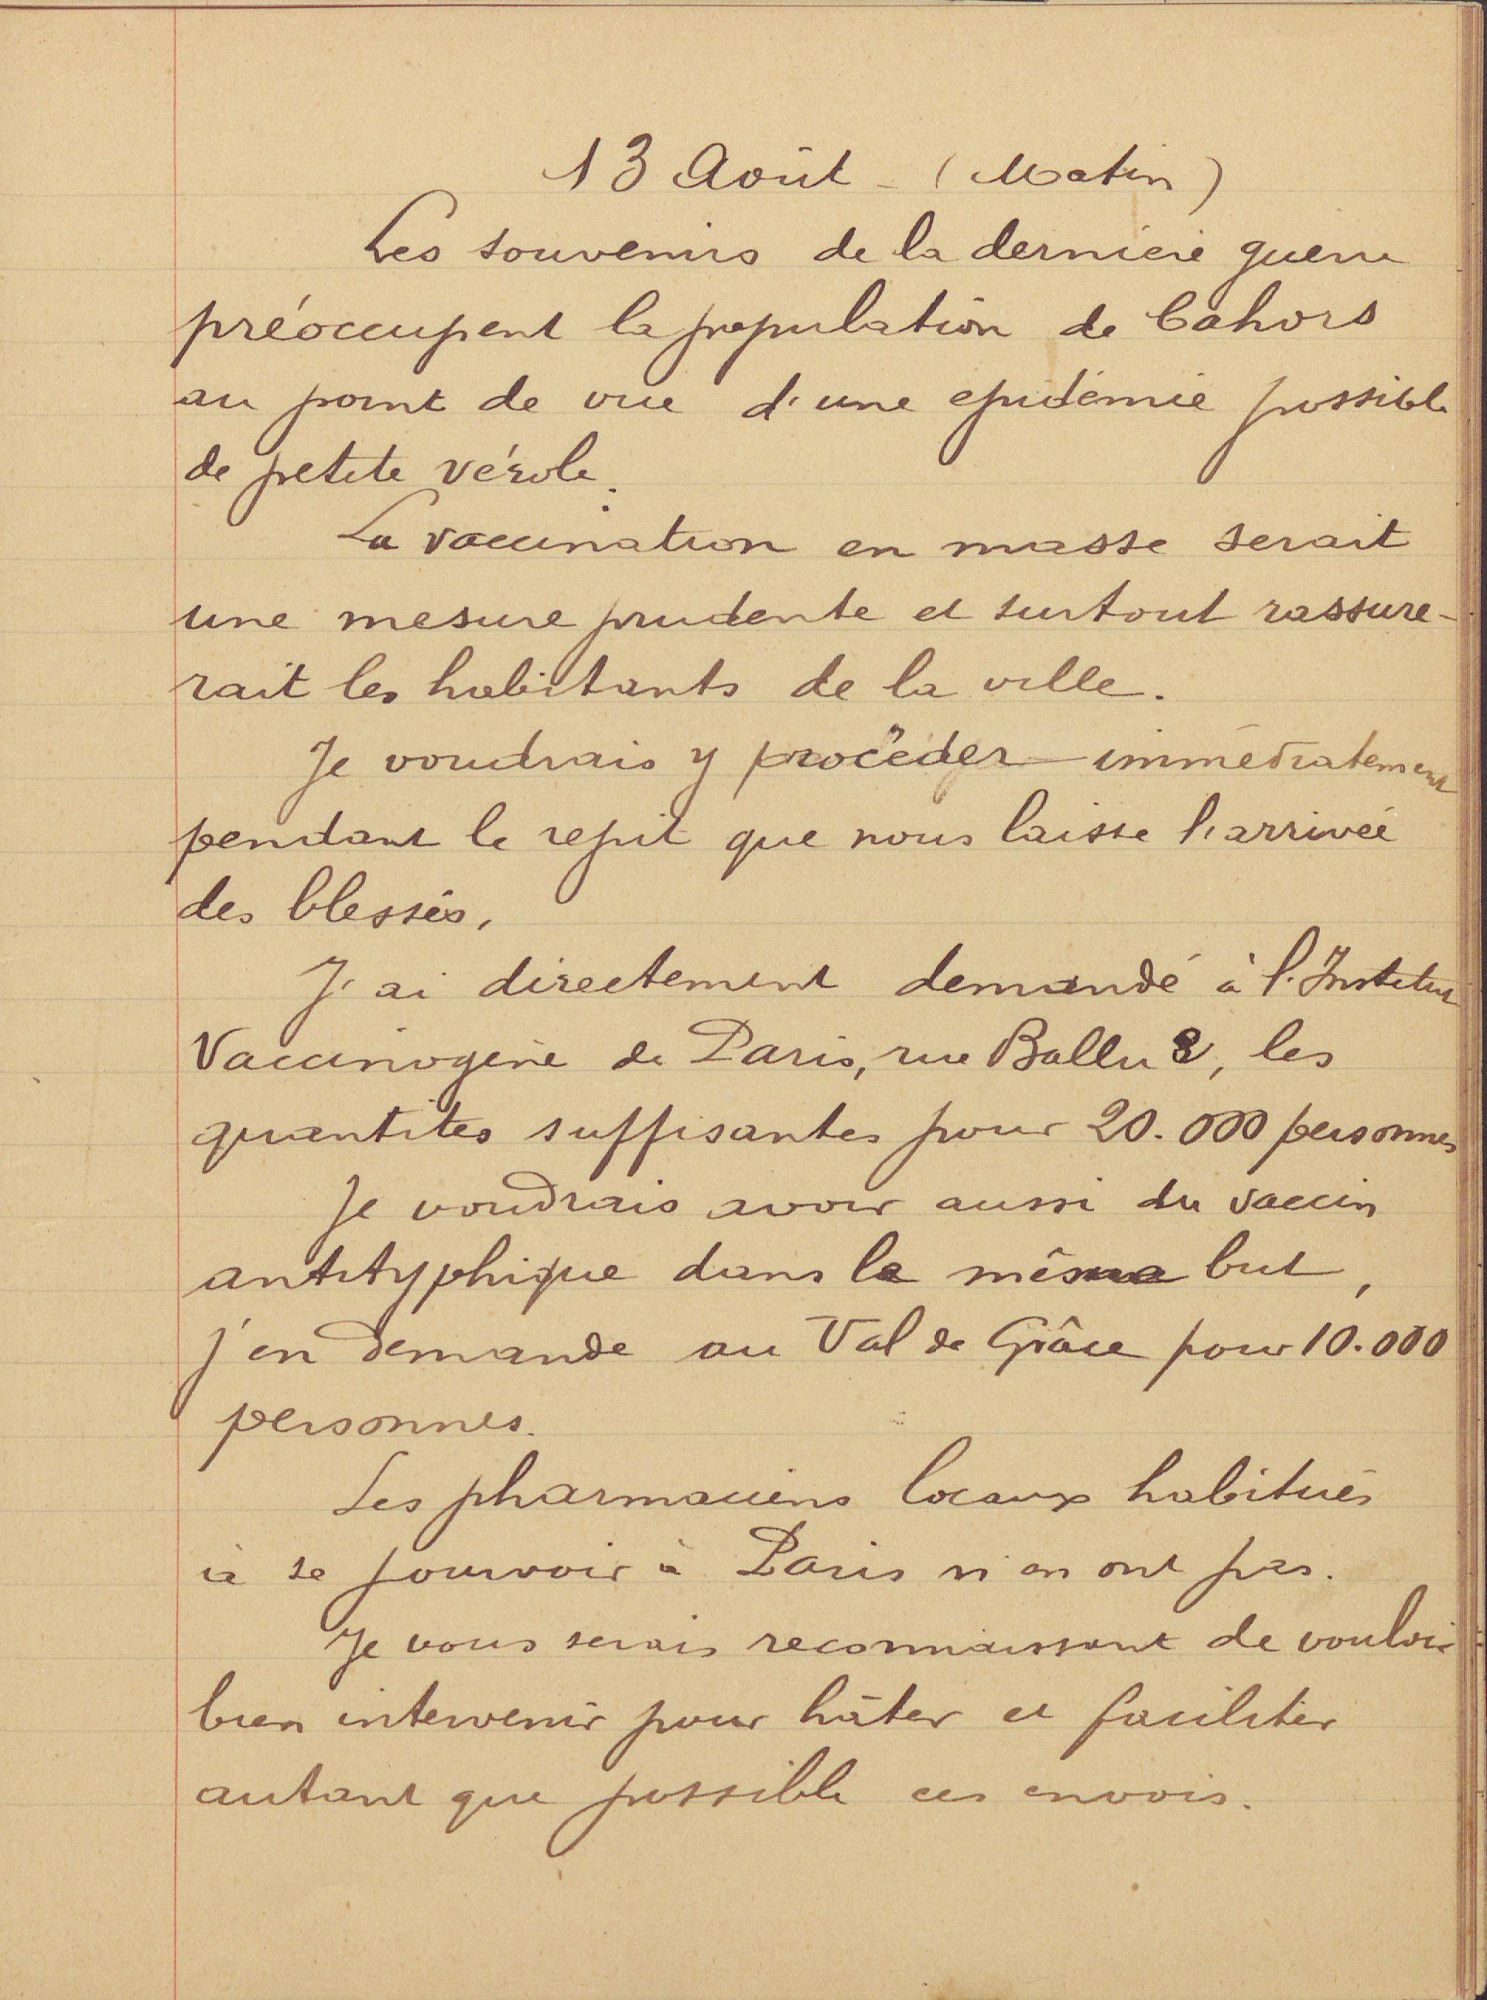 13 Août - (Matin)
Les souvenirs de la dernière guerre
préoccupent la population de Cahors
au point de vue d'une epidémie possible
de petite vérole.
La vaccination en masse serait
une mesure prudente et surtout rassure-
rait les habitants de la ville.
Je voudrais y procéder immédiatement
pendant le repit que nous laisse l'arrivée
des blessés.
J'ai directement demandé à l'Institut
Vaccinogène de Paris, rue Ballu 8, les
quantités suffisantes pour 20.000 personnes
Je voudrais avoir aussi du vaccin
antityphique dans le même but,
j'en demande au Val de Grâce pour 10.000
personnes.
Les pharmaciens locaux habitués
à se pourvoir à Paris n'en ont pas.
Je vous serais reconnaissant de vouloir
bien intervenir pour hâter et faciliter
autant que possible ces envois.